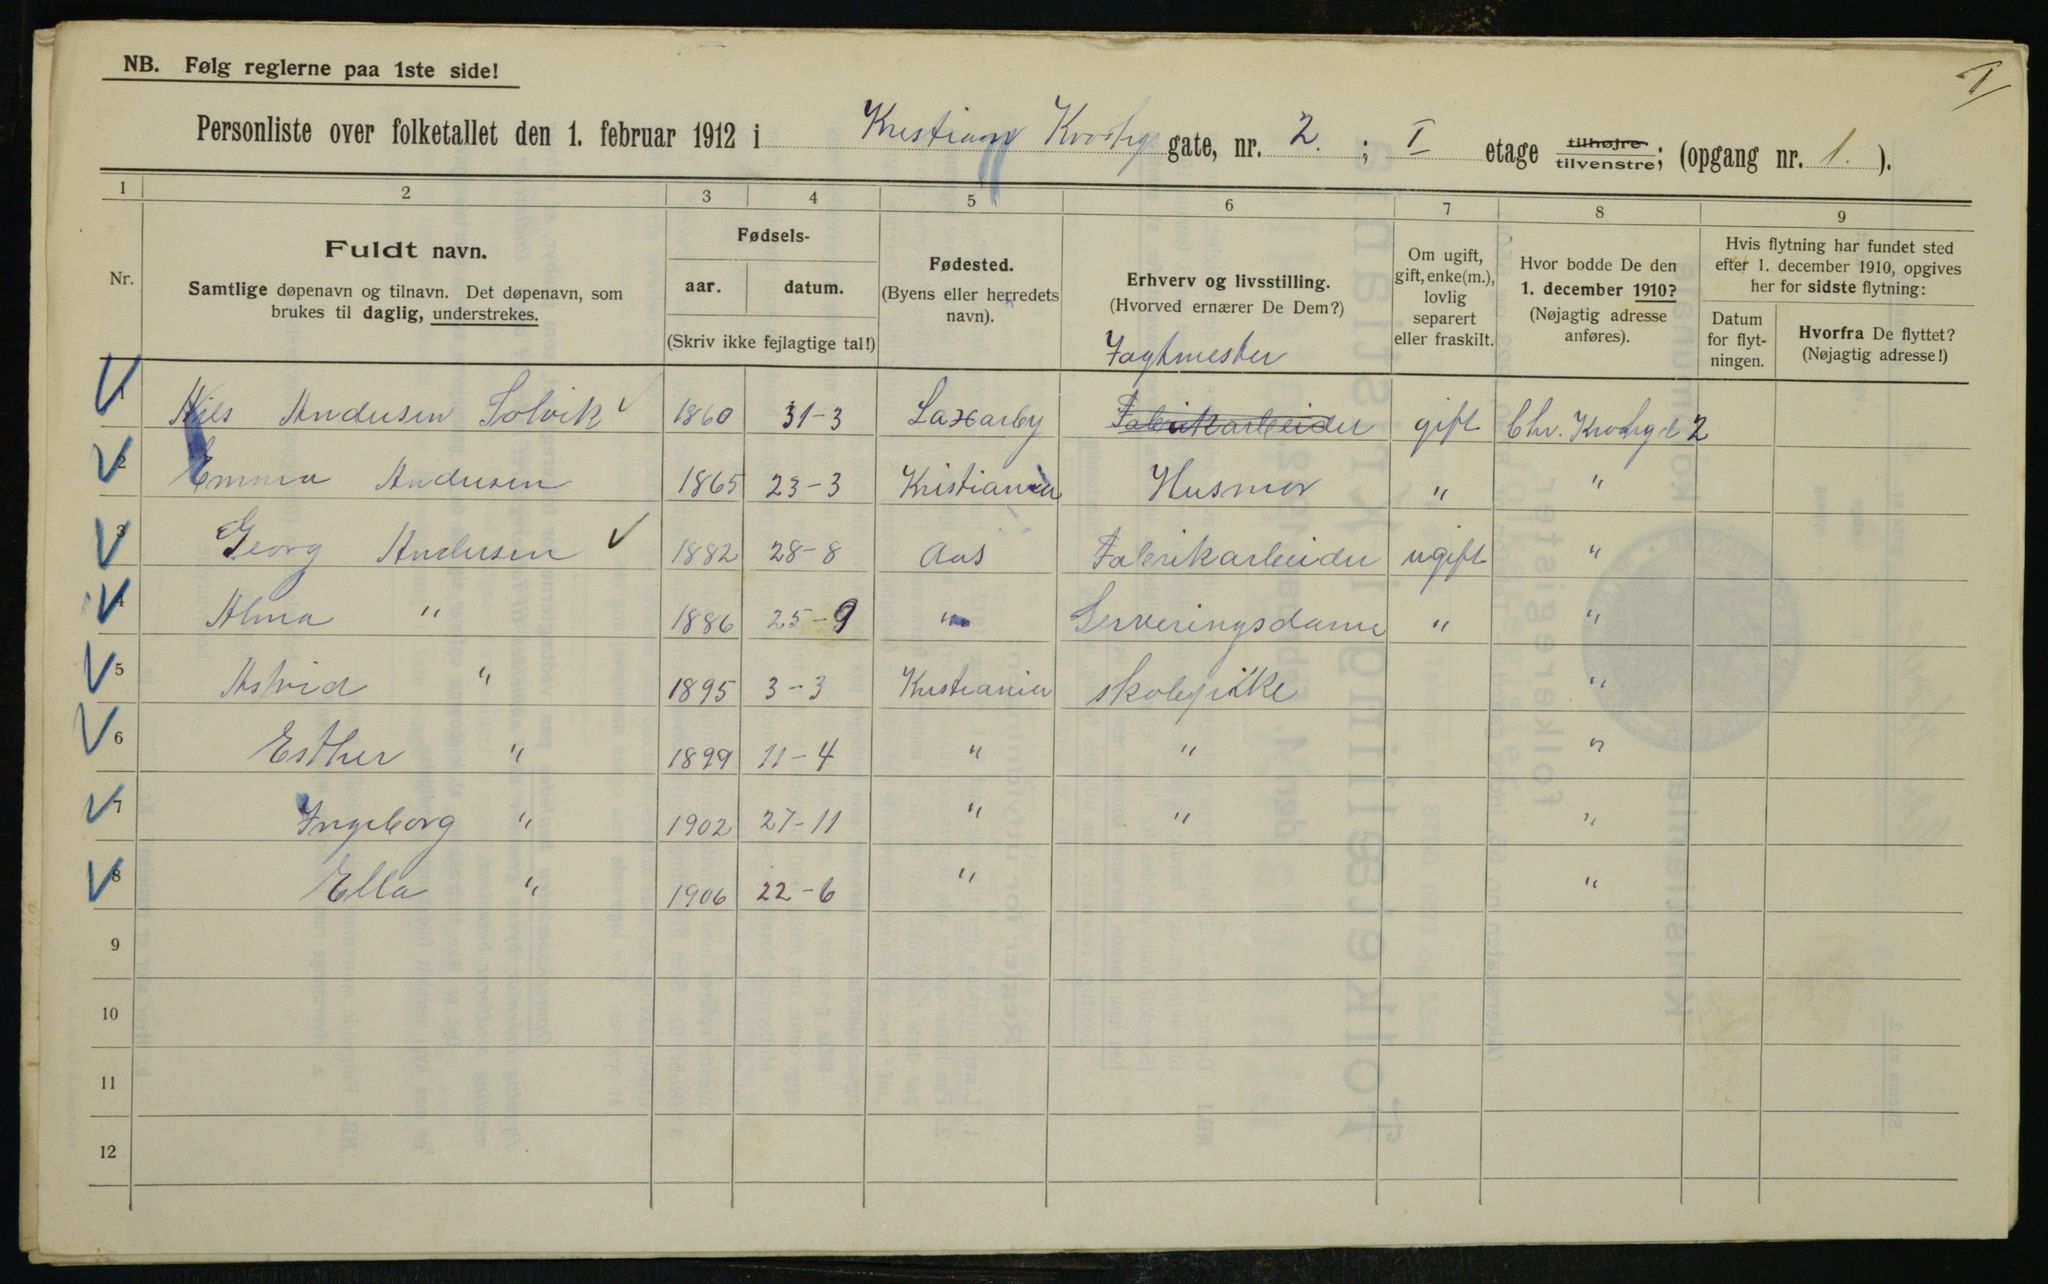 I
NB. Følg reglerne paa 1ste side!
Personliste over folketallet den 1. februar 1912 i Kristian Krohgs gate, nr. 2. ; I etage tilhøjre tilvenstre; (opgang nr. 1. ).
1 2 3 4 5 6 7 8 9
Nr.
Fuldt navn.
Samtlige døpenavn og tilnavn. Det døpenavn, som
brukes til daglig, understrekes.
Fødsels-
aar. datum.
(Skriv ikke fejlagtige tal!)
Fødested.
(Byens eller herredets
navn).
Erhverv og livsstilling.
(Hvorved ernærer De Dem?)
Om ugift,
gift, enke(m.),
lovlig
separert
eller fraskilt.
Hvor bodde De den
1. december 1910?
(Nøjagtig adresse
anføres).
Hvis flytning har fundet sted
efter 1. december 1910, opgives
her for sidste flytning:
Datum
for flyt-
ningen.
Hvorfra De flyttet?
(Nøjagtig adresse!)
Fagtmester
1 Nils Andersen Solvik 1860 31-3 Laxarby Fabrikarbeider gift Chr. Krohgs 2
2 Emma Andersen 1865 23-3 Kristiania Husmor " "
3 Georg Andersen 1882 28-8 Aas Fabrikarbeider ugift "
4 Alma " 1886 25-9 " Serveringsdame " "
5 Astrid " 1895 3-3 Kristiania skolepike "
6 Esther " 1899 11-4 " " "
7 Ingeborg " 1902 27-11 " " "
8 Ella " 1906 22-6 " "
9
10
11
12